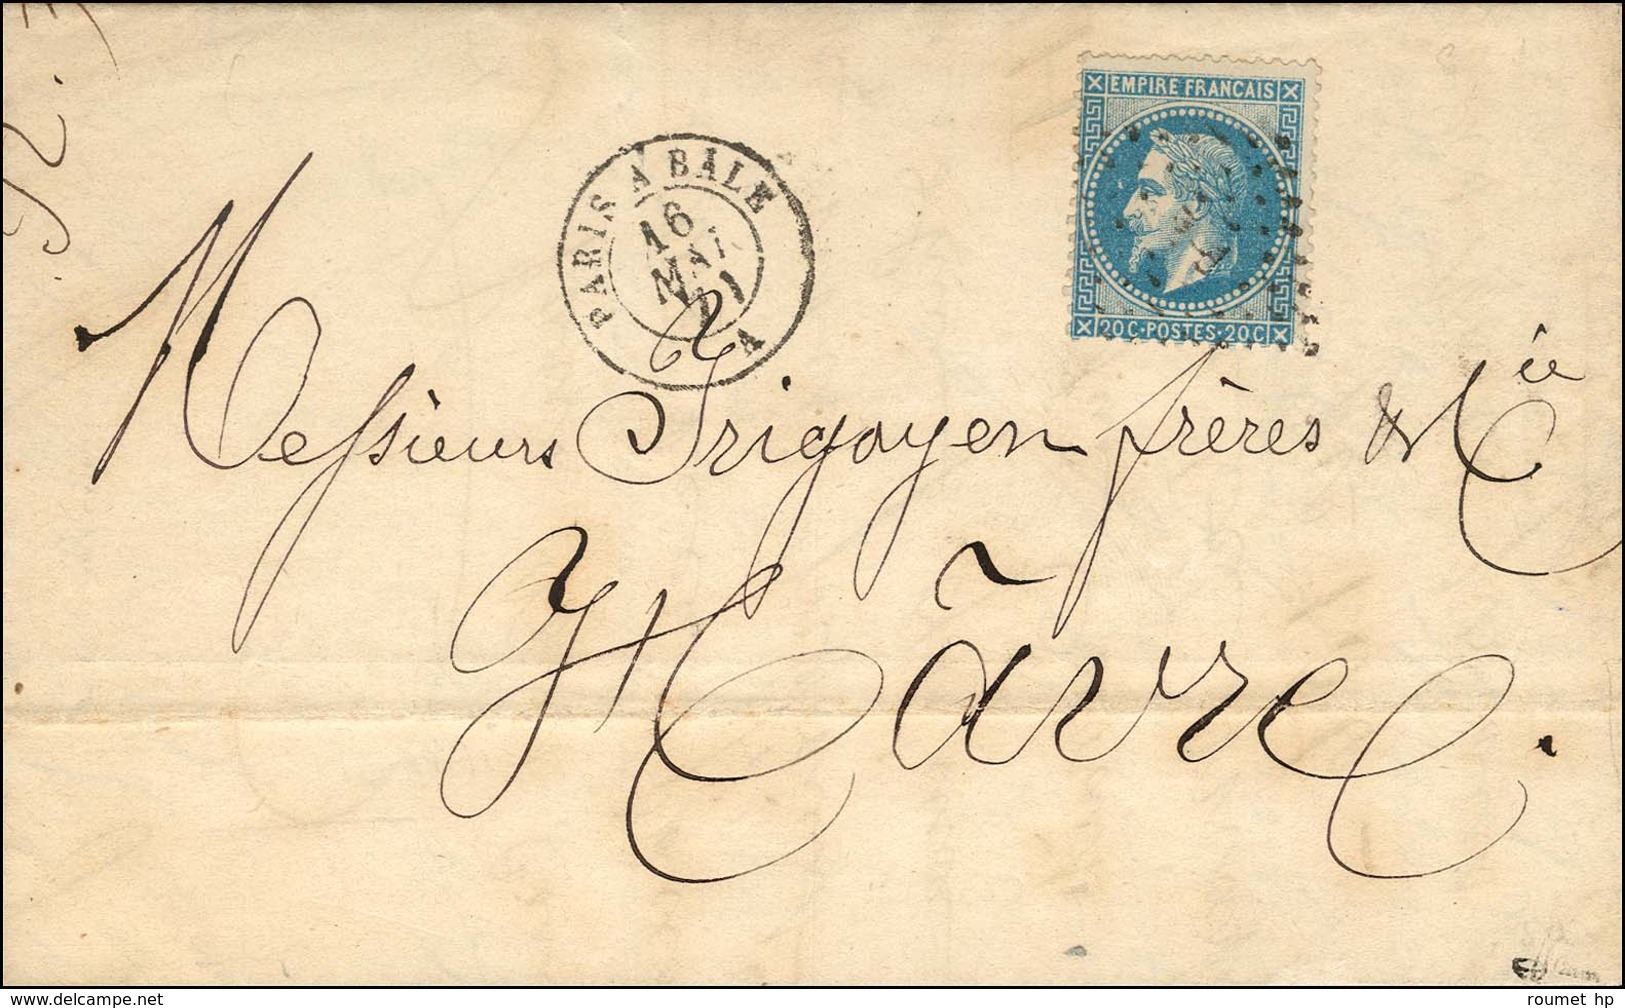 EMPIRE FRANCAIS
20 C·POSTES·20 C
PARIS A BALE
16
MAI
71
A
Messieurs Irigoyen frères & Cie
Hâvre.
roumet hp